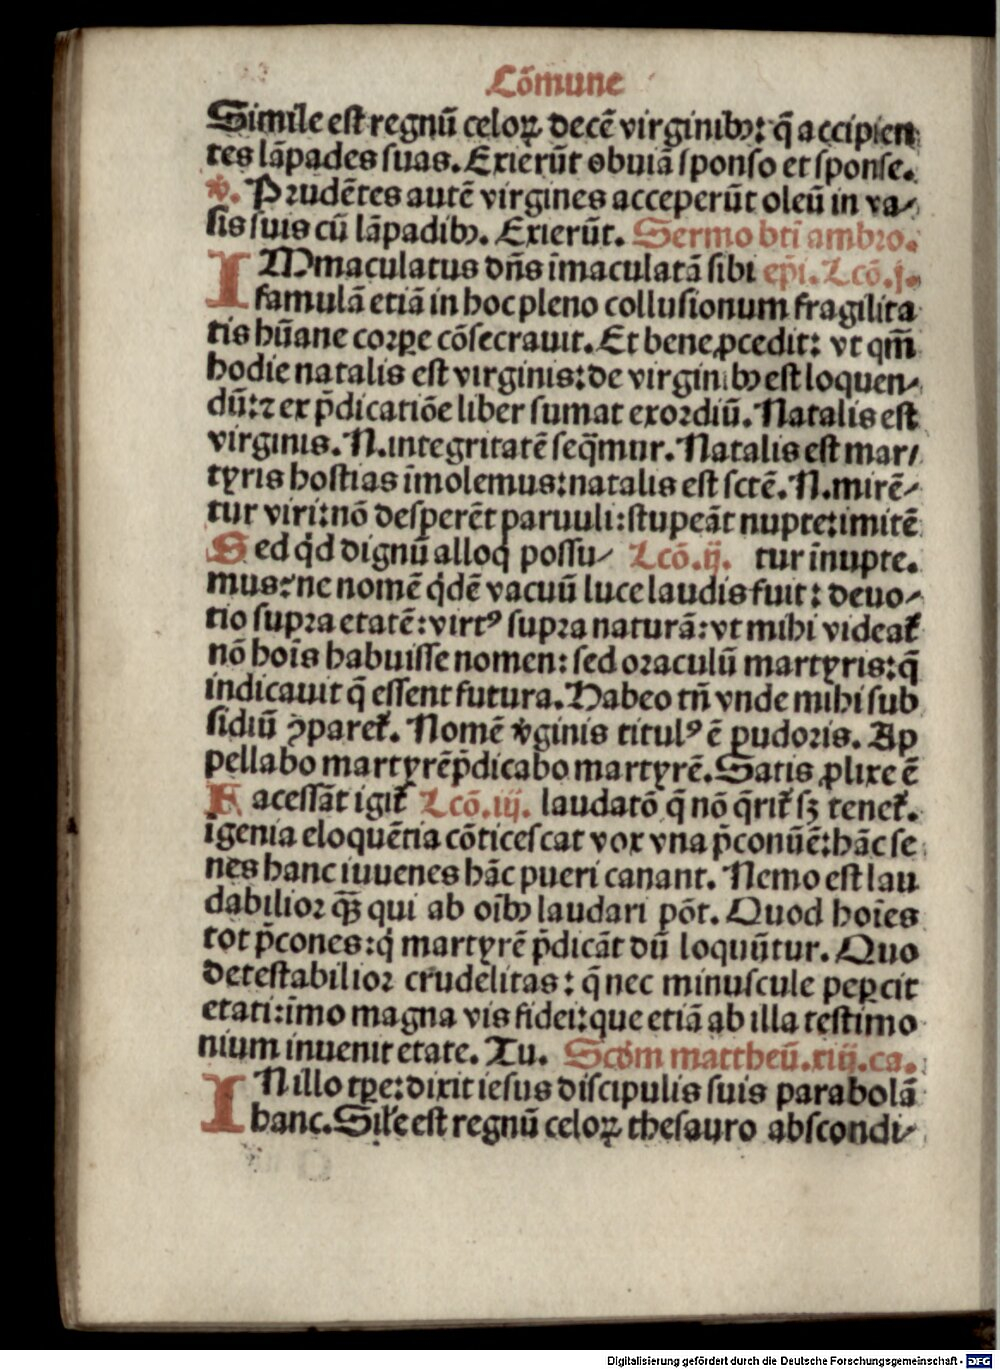 Cõmune
Simile est regnũ celoꝝ decẽ virginibꝰ: q̃ accipien
tes lãpades suas. Exierũt obuiã sponso et sponse.
℣. Prudẽtes autẽ virgines acceperũt oleũ in va⸗
sis suis cũ lãpadibꝰ. Exierũt. Sermo bti ambro.
IMmaculatus dñs ĩmaculatã sibi ep̃i. Lcõ.j.
famulã etiã in hoc pleno collusionum fragilita
tis hũane corꝑe cõsecrauit. Et bene ꝓcedit: vt qm̃
hodie natalis est virginis: de virginibꝰ est loquen⸗
dũ: ⁊ ex p̃dicatiõe liber sumat exordiũ. Natalis est
virginis. N. integritatẽ seq̃mur. Natalis est mar⸗
tyris hostias ĩmolemus: natalis est sctẽ. N. mirẽ⸗
tur viri: nõ desperẽt paruuli: stupeãt nupte: imitẽ
tur ĩnupte.
Sed qd dignũ alloq possu⸗ Lcõ.ij.
mus: ne nomẽ qdẽ vacuũ luce laudis fuit: deuo⸗
tio supra etatẽ: virtꝰ supra naturã: vt mihi videat᷑
nõ hoĩs habuisse nomen: sed oraculũ martyris: q̃
indicauit q̃ essent futura. Habeo tñ vnde mihi sub
sidiũ ꝯparet᷑. Nomẽ v̾ginis titulꝰ ẽ pudoris. Ap
pellabo martyrẽ p̃dicabo martyrẽ. Satis ꝓlixe ẽ
laudatõ q̃ nõ q̃rit᷑ sꝫ tenet᷑.
Facessãt igit᷑ Lcõ.iij.
igenia eloquẽtia cõticescat vox vna p̃conũ ẽ: hãc se
nes hanc iuuenes hãc pueri canant. Nemo est lau
dabilior qꝫ̃ qui ab oĩbꝰ laudari põt. Quod hoĩes
tot p̃cones: q martyrẽ p̃dicãt dũ loquũtur. Quo
detestabilior crudelitas: q̃ nec minuscule peꝑcit
etati: ĩmo magna vis fidei: que etiã ab illa testimo
nium inuenit etate. Tu. Scd̾m mattheũ.xiij.ca.
IN illo tꝑe: dixit iesus discipulis suis parabolã
hanc. Sil̾e est regnũ celoꝝ thesauro abscondi⸗
Digitalisierung gefördert durch die Deutsche Forschungsgemeinschaft - DFG